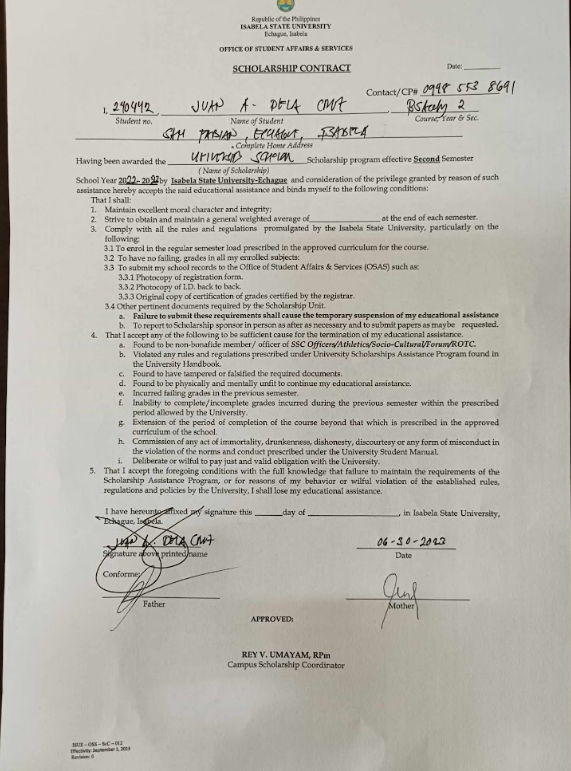 Republic of the Philippines
ISABELA STATE UNIVERSITY
Echague, Isabela
OFFICE OF STUDENT AFFAIRS & SERVICES
SCHOLARSHIP CONTRACT
Date:
Contact/CP# 0998 553 8691
I, 290492, JUAN A. DELA CRUZ
Student no. Name of Student Course, Year & Sec.
SAN FABIAN, ECHAGUE, ISABELA
Complete Home Address
Having been awarded the Scholarship program effective Second Semester
(Name of Scholarship)
School Year 2022-2023 by Isabela State University-Echague and consideration of the privilege granted by reason of such
assistance hereby accepts the said educational assistance and binds myself to the following conditions:
That I shall:
1. Maintain excellent moral character and integrity;
2. Strive to obtain and maintain a general weighted average of at the end of each semester.
3. Comply with all the rules and regulations promulgated by the Isabela State University, particularly on the
following:
3.1 To enrol in the regular semester load prescribed in the approved curriculum for the course.
3.2 To have no failing, grades in all my enrolled subjects:
3.3 To submit my school records to the Office of Student Affairs & Services (OSAS) such as:
3.3.1 Photocopy of registration form.
3.3.2 Photocopy of I.D. back to back.
3.3.3 Original copy of certification of grades certified by the registrar.
3.4 Other pertinent documents required by the Scholarship Unit.
a. Failure to submit these requirements shall cause the temporary suspension of my educational assistance
b. To report to Scholarship sponsor in person as after as necessary and to submit papers as maybe requested.
4. That I accept any of the following to be sufficient cause for the termination of my educational assistance.
a. Found to be non-bonafide member/ officer of SSC Officers/Athletics/Socio-Cultural/Forum/ROTC.
b. Violated any rules and regulations prescribed under University Scholarships Assistance Program found in
the University Handbook.
c. Found to have tampered or falsified the required documents.
d. Found to be physically and mentally unfit to continue my educational assistance.
e. Incurred failing grades in the previous semester.
f. Inability to complete/incomplete grades incurred during the previous semester within the prescribed
period allowed by the University.
g. Extension of the period of completion of the course beyond that which is prescribed in the approved
curriculum of the school.
h. Commission of any act of immortality, drunkenness, dishonesty, discourtesy or any form of misconduct in
the violation of the norms and conduct prescribed under the University Student Manual.
i. Deliberate or wilful to pay just and valid obligation with the University.
5. That I accept the foregoing conditions with the full knowledge that failure to maintain the requirements of the
Scholarship Assistance Program, or for reasons of my behavior or wilful violation of the established rules,
regulations and policies by the University, I shall lose my educational assistance.
I have hereunto affixed my signature this day of , in Isabela State University,
Echague, Isabela.
JUAN A. DELA CRUZ 06-30-2023
Signature above printed name Date
Conforme:
Father Mother
APPROVED:
REY V. UMAYAM, RPm
Campus Scholarship Coordinator
ISUE - OSS - SrC - 012
Effectivity: September 1, 2013
Revision: 0